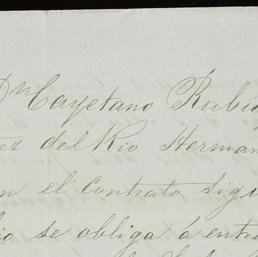 Dn Cayetano Rubio
ez del Rio Herman
n el contrato sigu
io se obliga á entre